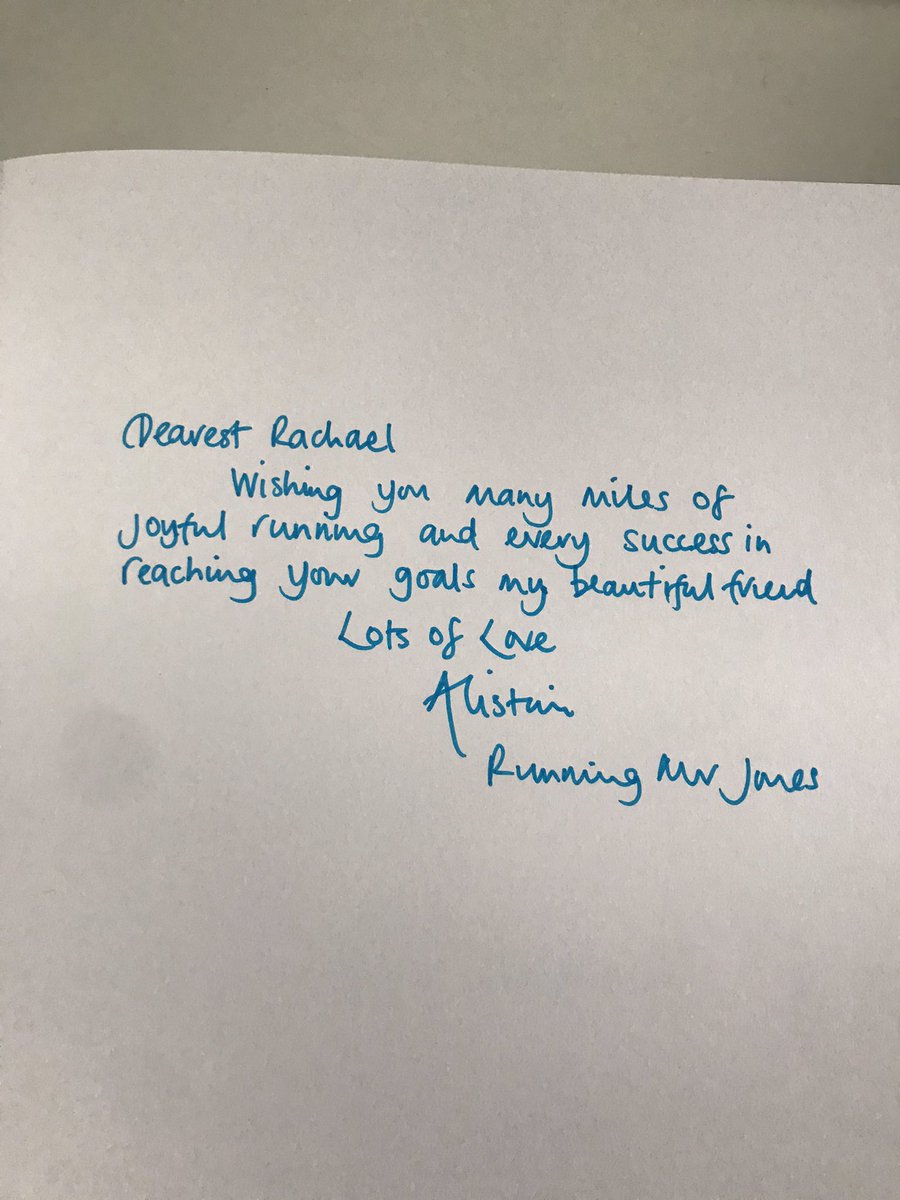 Dearest Rachael
Wishing you many miles of
joyful running and every success in
reaching your goals my beautiful friend
Lots of Love
Alistair
Running Mr Jones